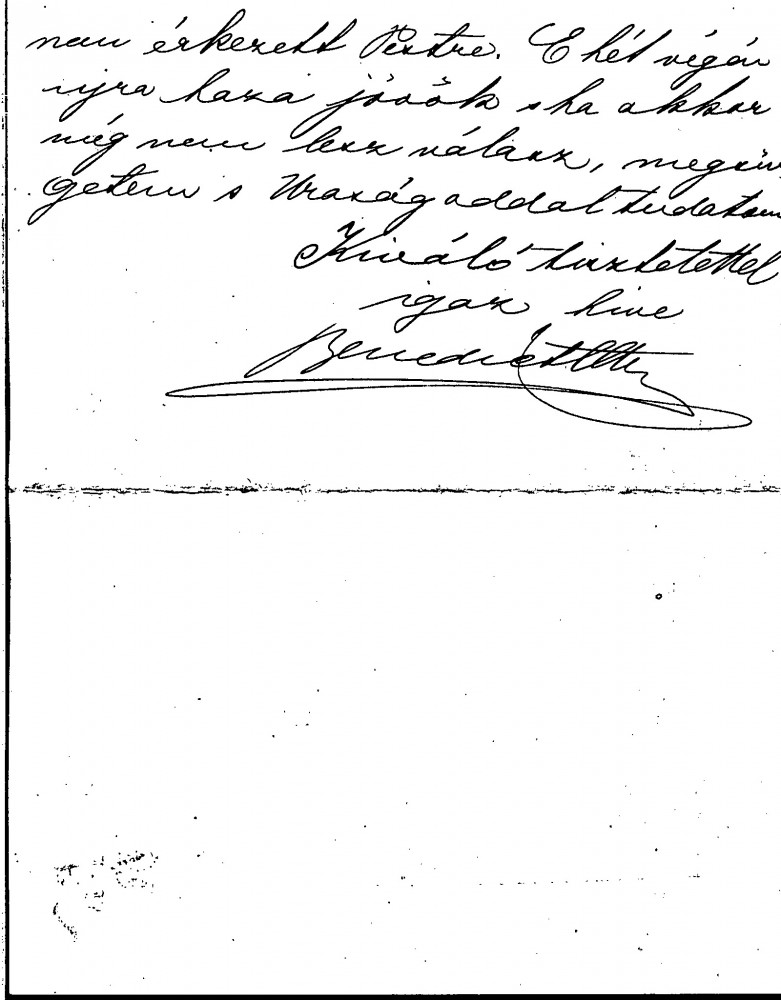 nem érkezett Pestre. E hét végén
ujra haza jövök s ha akkor
még nem lesz válasz, megsür
getem s Uraságoddal tudatom
Kiváló tisztelettel
igaz hive
Benedict